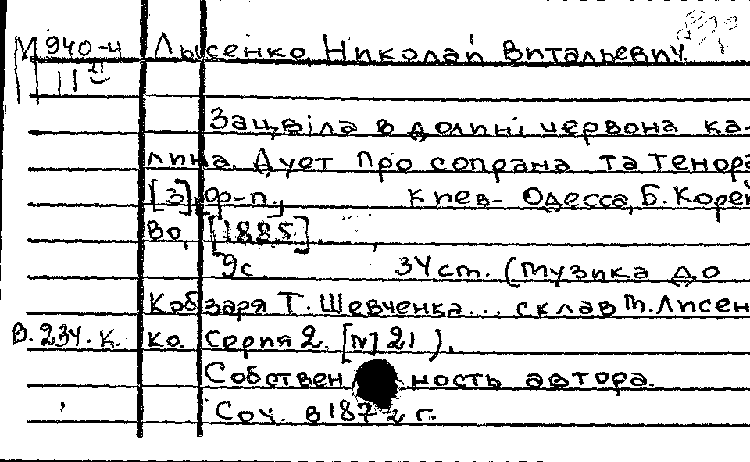 М 940-4 Лысенко Николай Витальевич
11
Зацвіла в долині червона ка-
лина. Дует про сопрана та тенора
[з] ф-п., Киев-Одесса, Б. Корей
во, [1885].
9с. 34 ст. (Музика до
Кобзаря Т. Шевченка... склав М. Лисен
В. 234. К. ко. Серия 2. [№ 21).
Собственность автора.
Соч. в 1872 г.